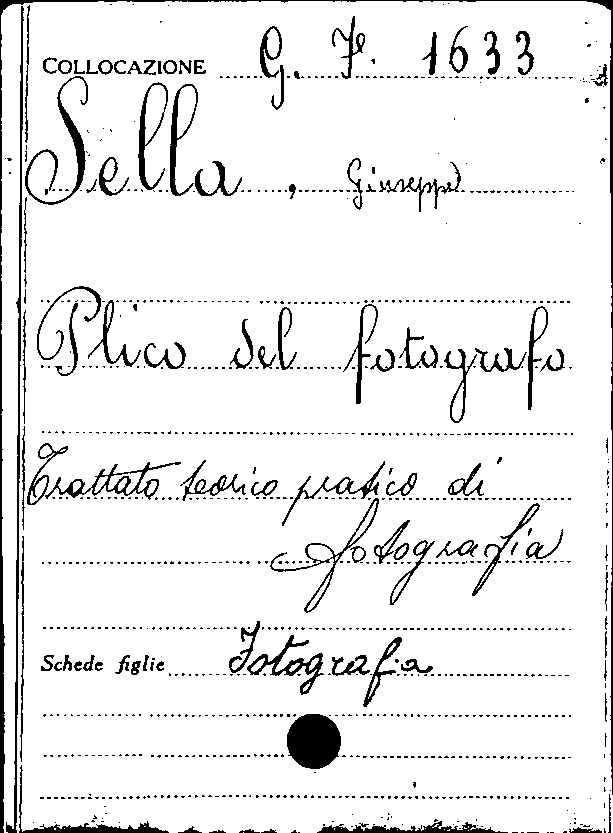 COLLOCAZIONE G. F. 1633
Sella, Giuseppe
Plico del fotografo
Trattato teorico pratico di
fotografia
Schede figlie Fotografia